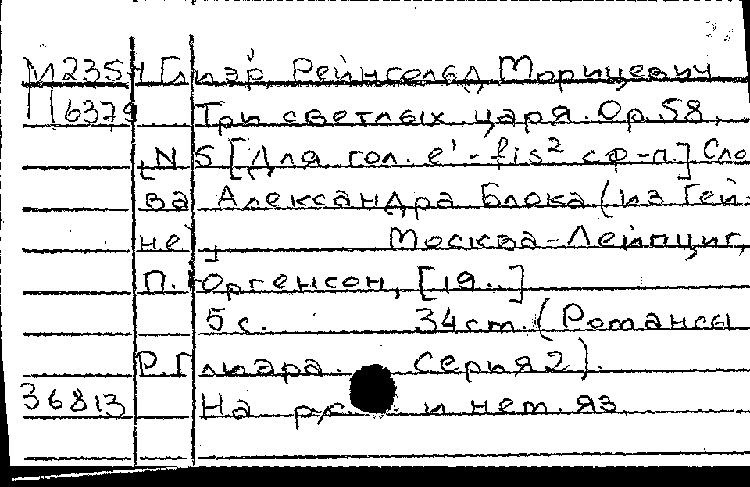 М235Ч Глиэр, Рейнгольд Морицевич
П6379 Три светлых царя. Ор. 58,
N 5 [Для гол. e'-fis² с ф-п.] Сло-
ва Александра Блока (из Гей-
не) Москва-Лейпциг,
П. Юргенсон, [19..]
5 с. 34 cm. (Романсы
Р. Глиэра. Серия 2).
36813 На и нем. яз.